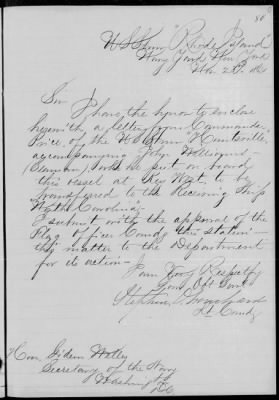 80
U.S. Str "Rhode Island"
Navy Yard New York
Nov 20.
Sir
I have the honor to enclose
herewith a letter from Commander
Price, of the U.S. Str "Huntsville"
accompanying John Williams
(Seaman), who was put on board
this vessel at Key West to be
transferred to the Receiving Ship
"North Carolina".
I submit with the approval of the
Flag Officer Comdg this station
this matter to the Department
for its action—
I am Very Respectfy
Your Obt Servt
Stephen D. Trenchard
Lt Comdg
Hon. Gideon Welles
Secretary of the Navy
Washington
D.C.